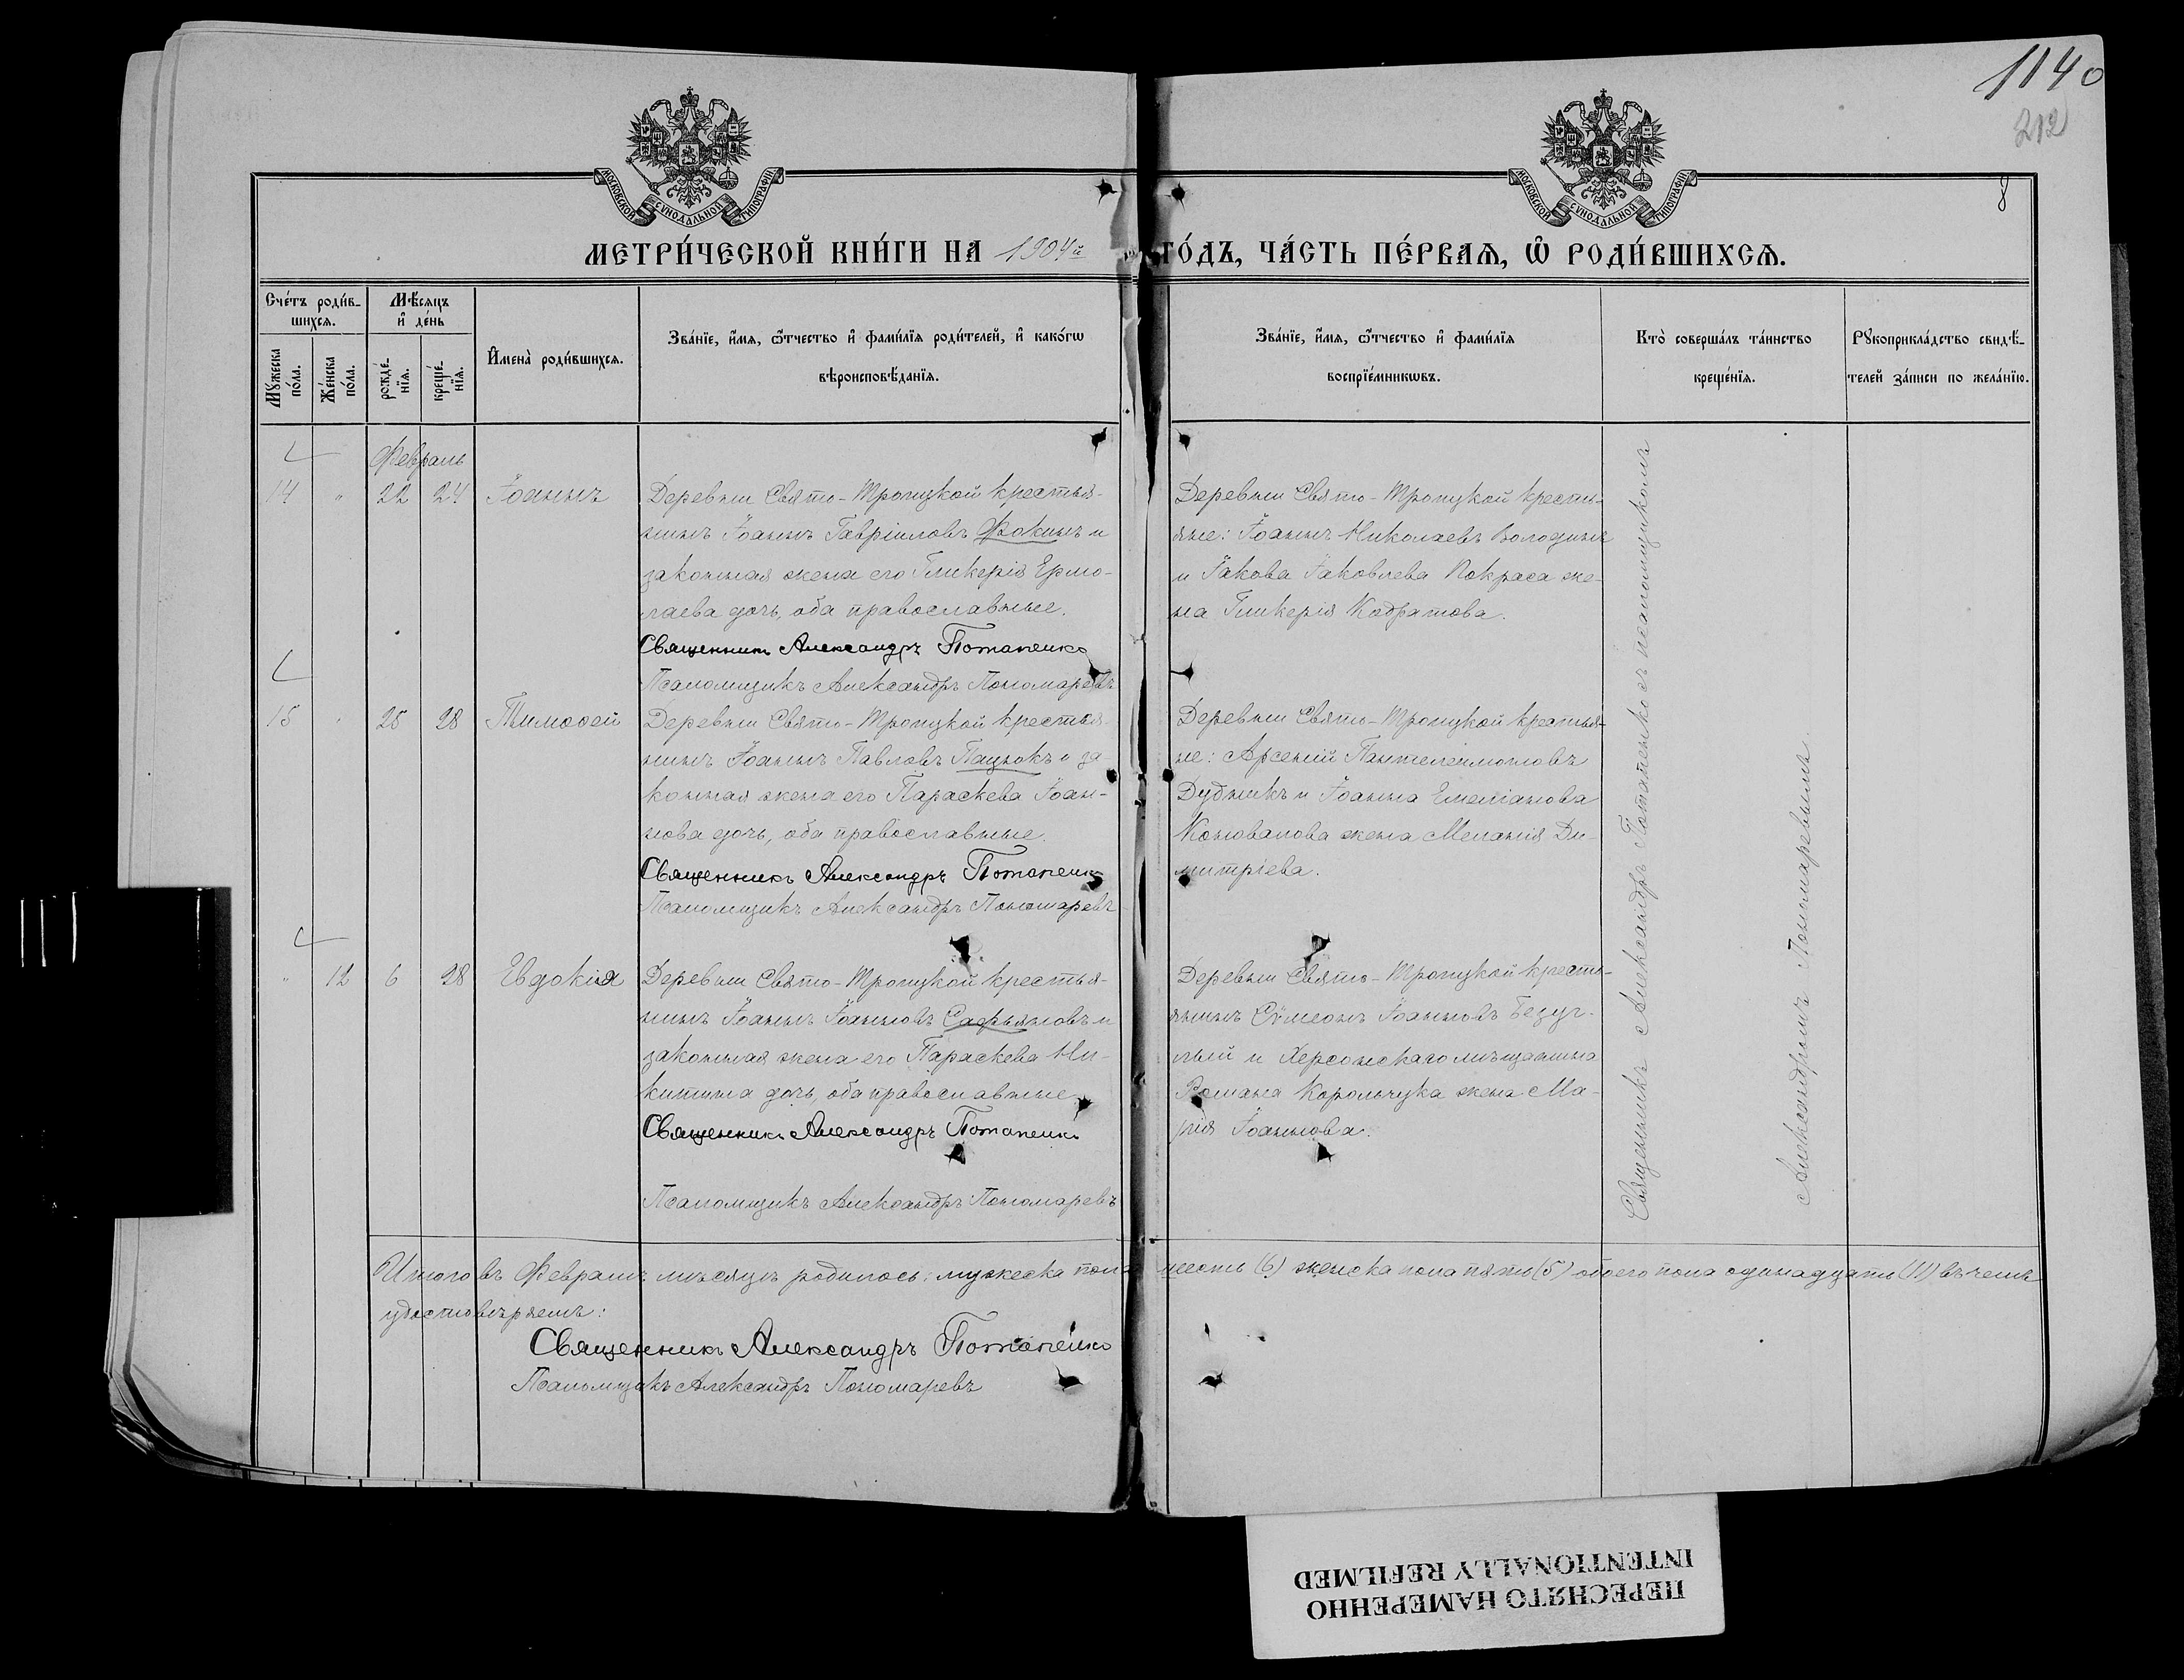 1140
212
8
МОСКОВСКОЙ СѴНОДАЛЬНОЙ ТИПОГРАФІИ
МОСКОВСКОЙ СѴНОДАЛЬНОЙ ТИПОГРАФІИ
МЕТРИ́ЧЕСКОЙ КНИ́ГИ НА 1904й ГО́ДЪ, ЧА́СТЬ ПЕ́РВАѦ, Ѽ РОДИ́ВШИХСѦ.
Сче́тъ роди́в-
шихсѧ.
Мѣ́сѧцъ
и҆ де́нь
Мꙋ́жеска
по́ла.
Же́нска
по́ла.
рожде́-
нїѧ.
креще́-
нїѧ.
И҆мена̀ роди́вшихсѧ.
Зва́нїе, и҆́мѧ, ѻ҆́тчество и҆ фами́лїѧ роди́телей, и҆ како́гѡ
вѣроисповѣ́данїѧ.
Зва́нїе, и҆́мѧ, ѻ҆́тчество и҆ фами́лїѧ
воспрїе́мникѡвъ.
Кто̀ соверша́лъ та́инство
креще́нїѧ.
Рꙋкоприкла́дство свидѣ́-
телей за́писи по жела́нїю.
Февраль
14 " 22 24 Іоаннъ
Деревни Свято-Троицкой крестья-
нинъ Іоаннъ Гавріиловъ Фокинъ и
законная жена его Гликерія Ермо-
лаева дочь, оба православные.
Священникъ Александръ Потапенко
Псаломщикъ Александръ Пономаревъ
Деревни Свято-Троицкой кресть-
яне: Іоаннъ Николаевъ Володинъ
и Іакова Іаковлева Покраса же-
на Гликерія Кодратова.
15 " 25 28 Тимоѳей
Деревни Свято-Троицкой крестья-
нинъ Іоаннъ Павловъ Пацюкъ и за-
конная жена его Параскева Іоан-
нова дочь, оба православные.
Священникъ Александръ Потапенко
Псаломщикъ Александръ Пономаревъ
Деревни Свято-Троицкой крестья-
не: Арсеній Пантелеимоновъ
Дудникъ и Іоанна Емеліанова
Коновалова жена Меланія Ди-
митріева.
" 12 6 28 Евдокія
Деревни Свято-Троицкой крестья-
нинъ Іоаннъ Іоанновъ Сафьяновъ и
законная жена его Параскева Ни-
китина дочь, оба православные.
Священникъ Александръ Потапенко
Псаломщикъ Александръ Пономаревъ
Деревни Свято-Троицкой кресть-
янинъ Сѵмеонъ Іоанновъ Безуг-
лый и Херсонскаго мѣщанина
Романа Корольчука жена Ма-
рія Іоаннова.
Священникъ Александръ Потапенко съ псаломщикомъ
Александромъ Пономаревымъ.
Итого въ Февралѣ мѣсяцѣ родилось: мужеска пола шесть (6) женска пола пять (5) обоего пола одинадцать (11) въ чемъ
удостовѣряемъ:
Священникъ Александръ Потапенко
Псаломщикъ Александръ Пономаревъ
ПЕРЕСНЯТО НАМЕРЕННО
INTENTIONALLY REFILMED